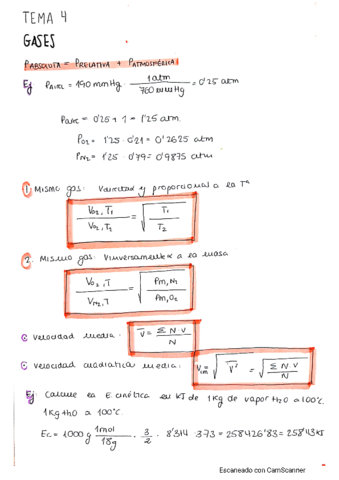 TEMA 4
GASES
PABSOLUTA = PRELATIVA + PATMOSFÉRICA
Ej PAIRE = 190 mmHg 1 atm / 760 mmHg = 0'25 atm
PAIRE = 0'25 + 1 = 1'25 atm.
PO2 = 1'25 · 0'21 = 0'2625 atm
PN2 = 1'25 · 0'79 = 0'9875 atm
1. Mismo gas: V proporcional a la Tª
VO2, T1 / VO2, T2 = √ T1 / T2
2. Mismo gas: V inversamente a la masa
VO2, T / VN2, T = √ Pm, N2 / Pm, O2
velocidad media: V̄ = Σ N V / N
velocidad cuadrática media: √ V̄² = √ Σ N V / N
Ej: Calcule la E cinética en kJ de 1 Kg de vapor H2O a 100°C.
1 Kg H2O a 100°C.
Ec = 1000 g 1 mol / 18 g · 3 / 2 · 8'314 · 373 = 258426'83 = 258'43 KJ
Escaneado con CamScanner